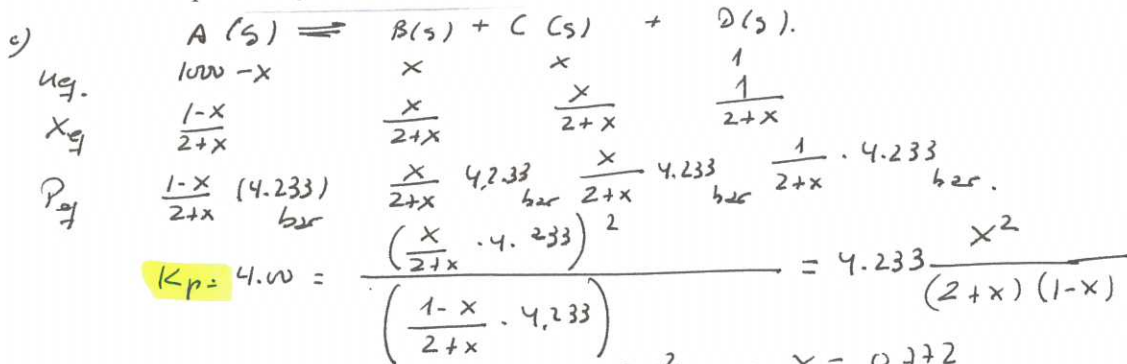 c) A (g) ⇌ B(g) + C (g) + D(g).
neq. 1000 - x x x 1
Xeq \frac{1-x}{2+x} \frac{x}{2+x} \frac{x}{2+x} \frac{1}{2+x}
Peq \frac{1-x}{2+x} (4.233) bar \frac{x}{2+x} 4,233 bar \frac{x}{2+x} 4.233 bar \frac{1}{2+x} · 4.233 bar.
Kp = 4.00 = \frac{(\frac{x}{2+x} · 4. 233)^2}{(\frac{1-x}{2+x} · 4,233)} = 4.233 \frac{x^2}{(2+x) (1-x)}